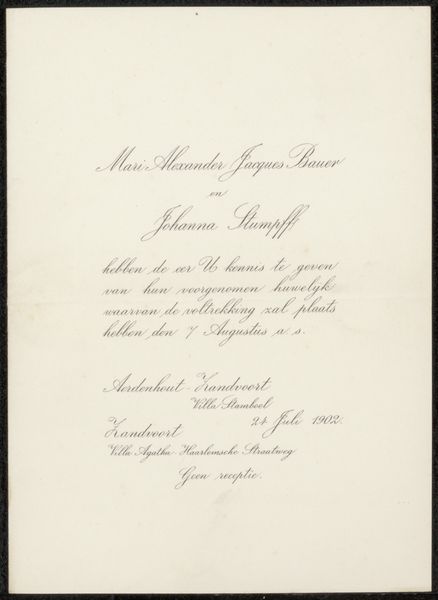 Mari Alexander Jacques Bauer
en
Johanna Stumpff
hebben de eer U kennis te geven
van hun voorgenomen huwelijk
waarvan de voltrekking zal plaats
hebben den 7 Augustus a.s.
Aerdenhout-Zandvoort
Villa Stamboel
24 Juli 1902.
Zandvoort
Villa Agatha-Haarlemsche Straatweg
Geen receptie.